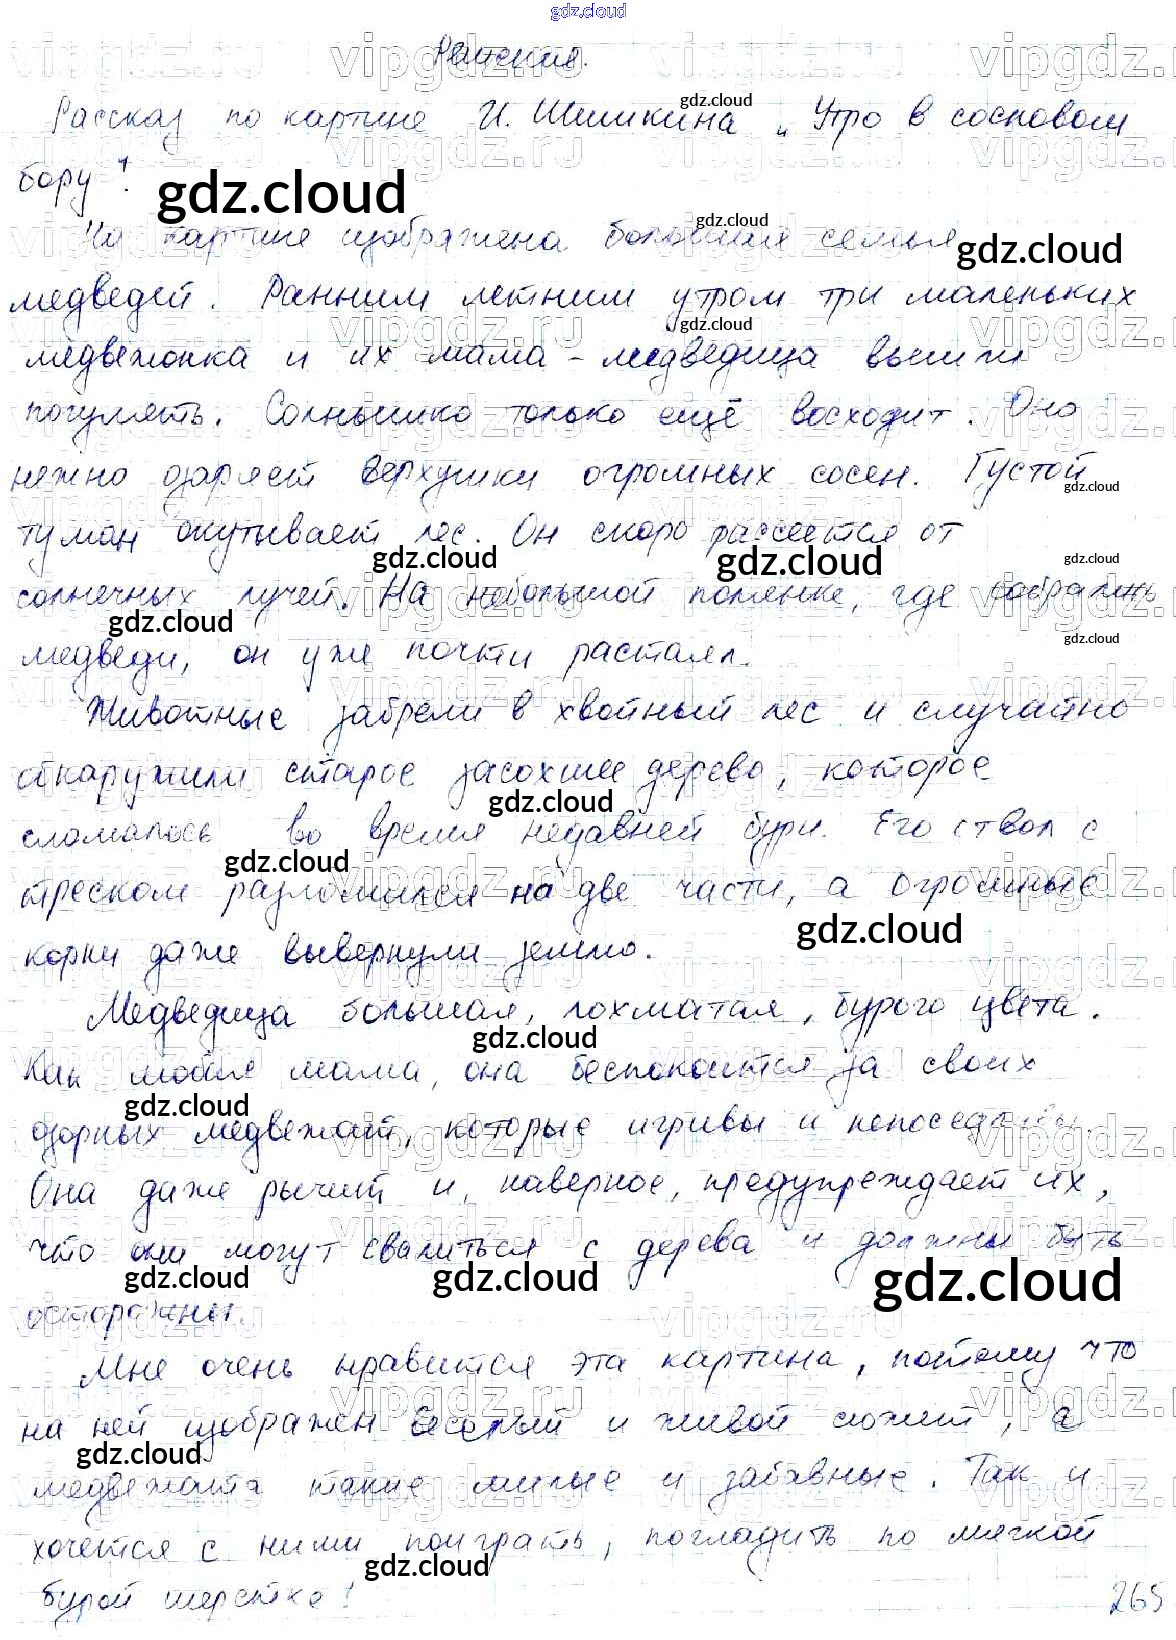 gdz.cloud
Решение.
Рассказ по картине И. Шишкина „Утро в сосновом
бору".
На картине изображена большая семья
медведей. Ранним летним утром три маленьких
медвежонка и их мама - медведица вышли
погулять. Солнышко только ещё восходит. Оно
нежно озаряет верхушки огромных сосен. Густой
туман окутывает лес. Он скоро рассеется от
солнечных лучей. На небольшой полянке, где собрались
медведи, он уже почти растаял.
Животные забрели в хвойный лес и случайно
обнаружили старое засохшее дерево, которое
сломалось во время недавней бури. Его ствол с
треском разломился на две части, а огромные
корни даже вывернули землю.
Медведица большая, лохматая, бурого цвета.
Как любые мама, она беспокоится за своих
озорных медвежат, которые игривы и непоседливы.
Она даже рычит и, наверное, предупреждает их,
что они могут свалиться с дерева и должны быть
осторожны.
Мне очень нравится эта картина, потому что
на ней изображен веселый и живой сюжет, а
медвежата такие милые и забавные. Так и
хочется с ними поиграть, погладить по мягкой
бурой шерстке!
265